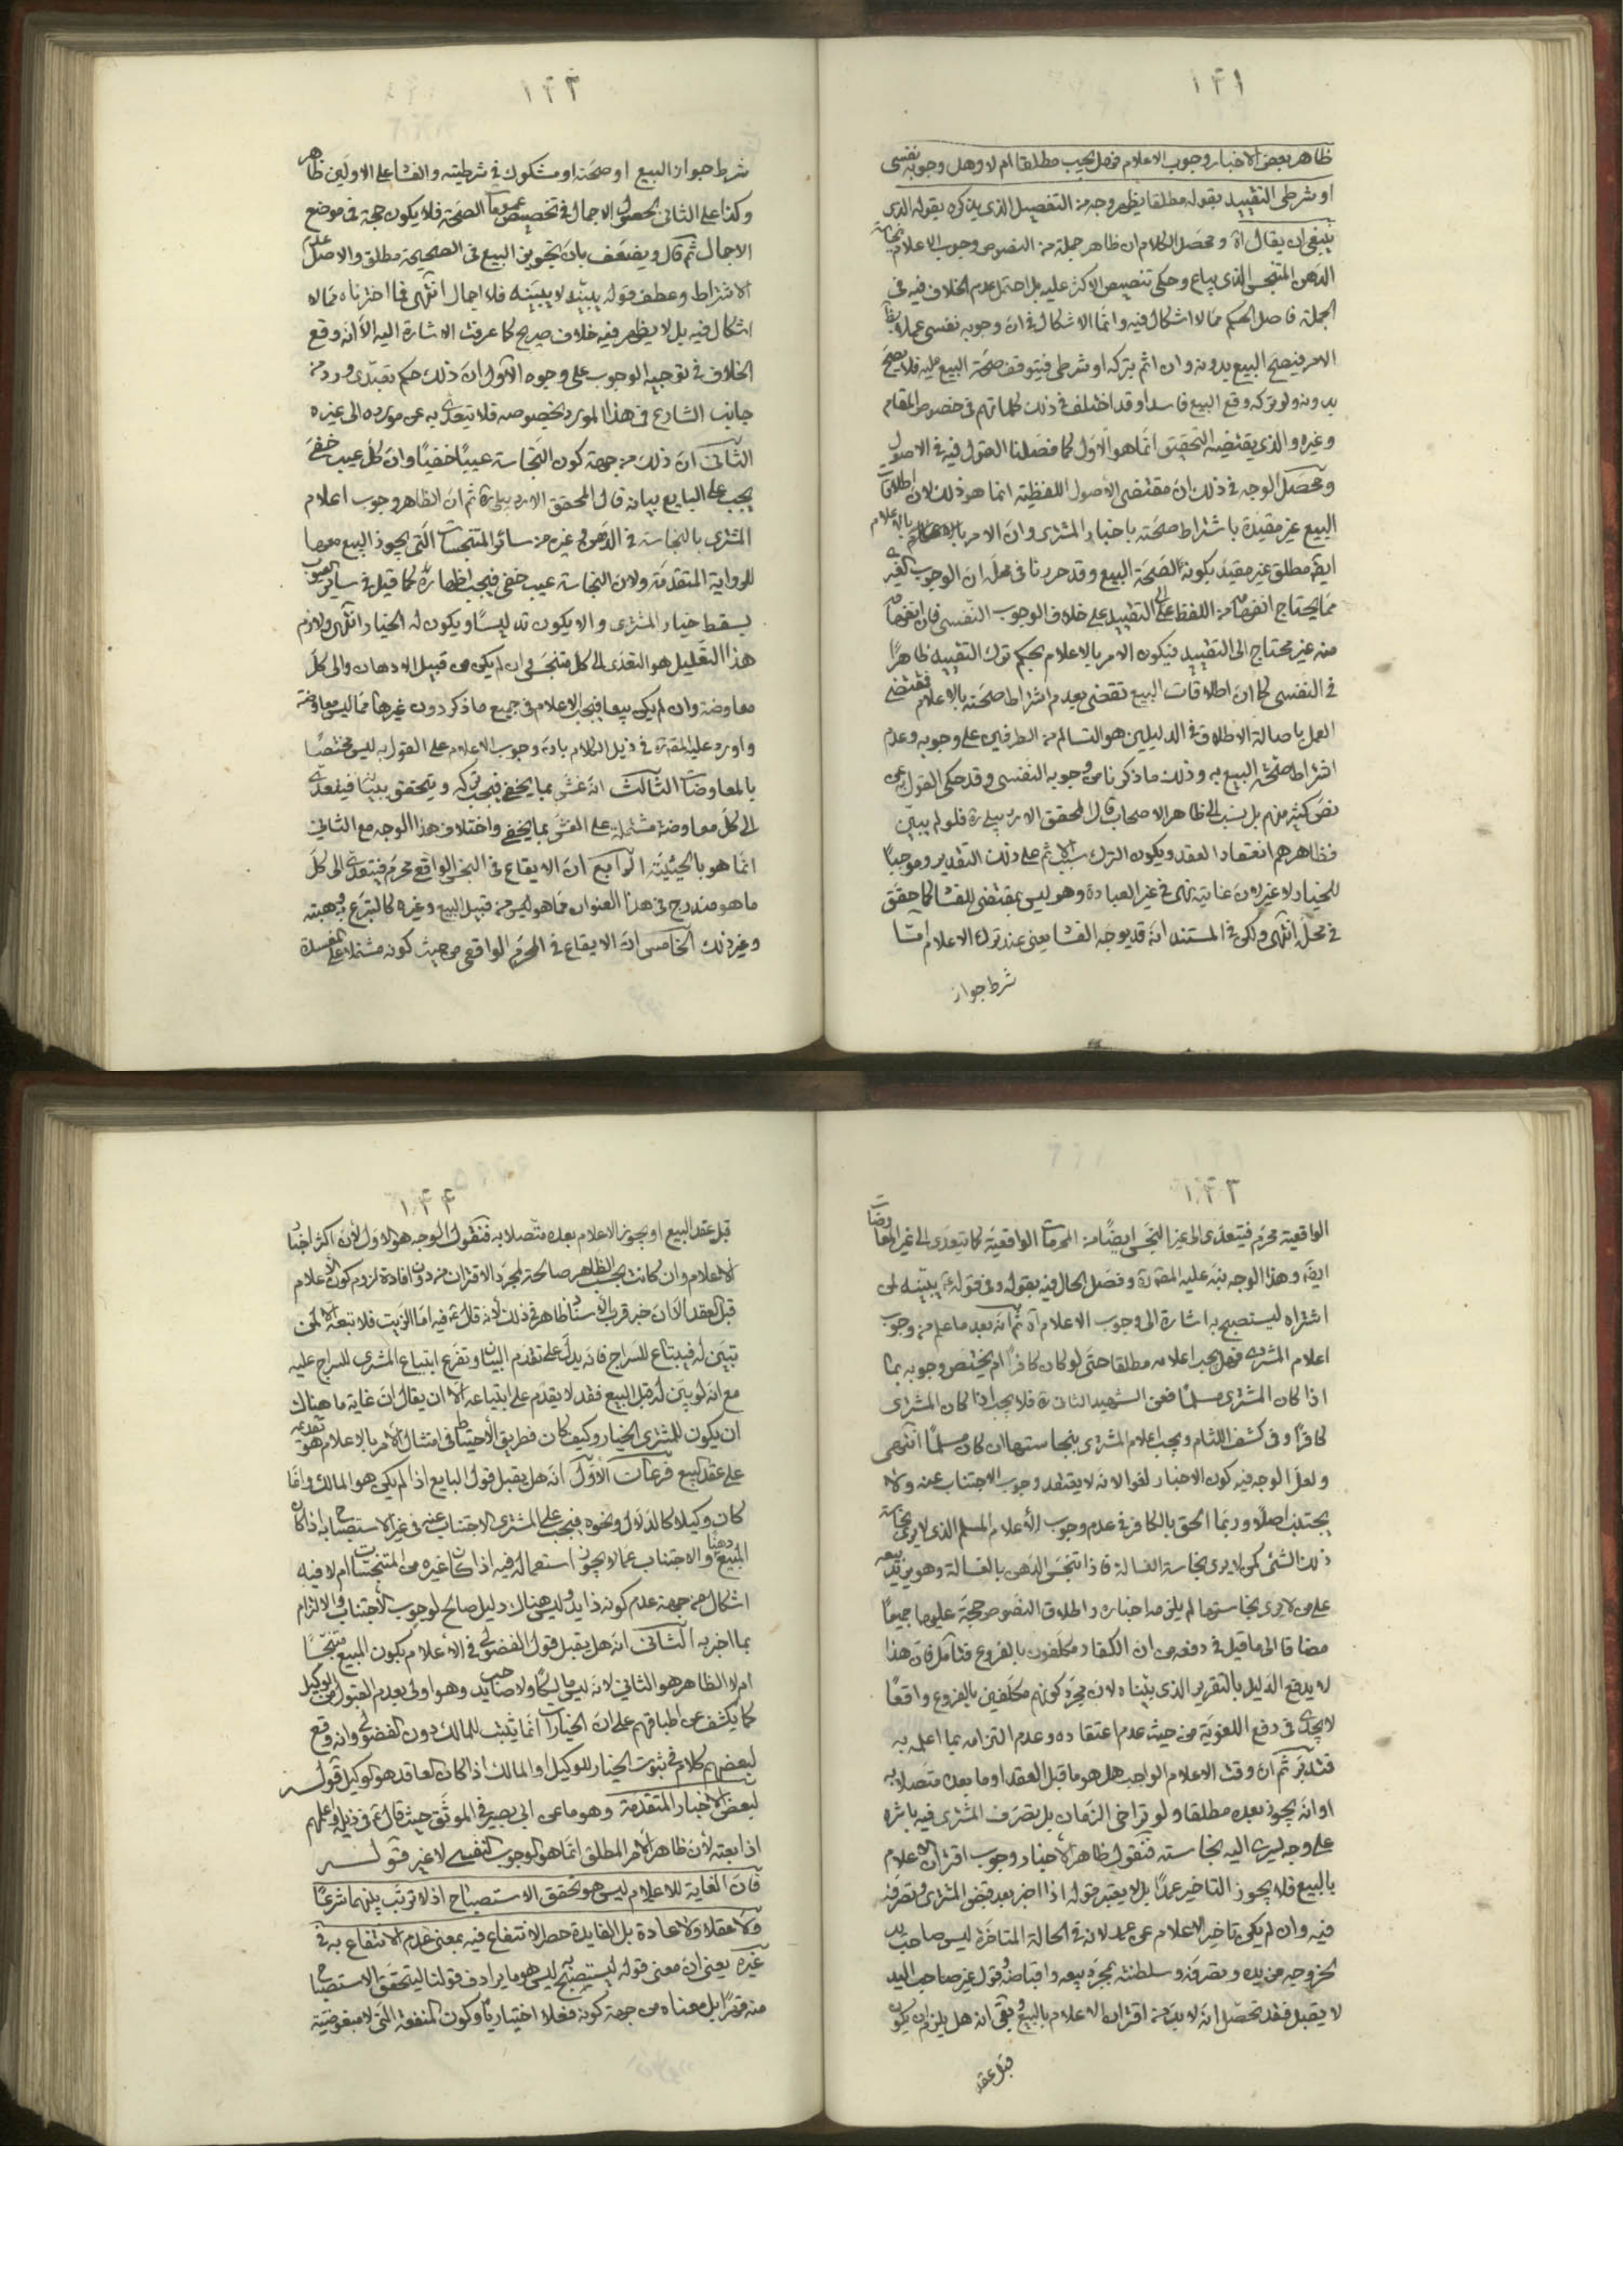 ١٢١
ظاهر بعض الاخبار وجوب الاعلام فهل يجب مطلقا ام لا وهل وجوبه نفسى
او شرطى التقييد بقوله مطلقا يظهر وجهه من التفصيل الذى يذكره بقوله الذى
ينبغى ان يقال آه ومحصل الكلام ان ظاهر جملة من النصوص وجوب الاعلام بنجاسة
الدهن المتنجس الذى يباع وحكى تنصيص الاكثر عليه بل احتمل عدم الخلاف فيه فى
الجملة فاصل الحكم مما لا اشكال فيه وانما الاشكال فى ان وجوبه نفسى عملا بظاهر
الامر فيصح البيع بدونه وان اثم بتركه او شرطى فيتوقف صحة البيع عليه فلا يصح
بدونه ولو تركه وقع البيع فاسدا وقد اختلف فى ذلك كلماتهم فى خصوص المقام
وغيره والذى يقتضيه التحقيق انما هو الاول كما فصلنا القول فيه فى الاصول
ومحصل الوجه فى ذلك ان مقتضى الاصول اللفظية انما هو ذلك لان اطلاقات
البيع غير مقيدة باشتراط صحته باخبار المشترى وان الامر بالاعلام
ايضا مطلق غير مقيد بكونه لصحة البيع وقد حررنا فى محله ان الوجوب الغيرى
مما يحتاج انفهامه من اللفظ الى التقييد على خلاف الوجوب النفسى فان انفهامه
منه غير محتاج الى التقييد فيكون الامر بالاعلام بحكم ترك التقييد ظاهرا
فى النفسى كما ان اطلاقات البيع تقضى بعدم اشتراط صحته بالاعلام فمقتضى
العمل باصالة الاطلاق فى الدليلين هو التسالم من الطرفين على وجوبه وعدم
اشتراط صحة البيع به وذلك ما ذكرنا من وجوبه النفسى وقد حكى القول به عن
نص كثير منهم بل نسب الى ظاهر الاصحاب قال المحقق الاردبيلى ره فلو لم يبين
فظاهرهم انعقاد العقد ويكون الترك سببا لاثم على ذلك التقدير وموجبا
للخيار لا غير لان غايته نهى فى غير العبادة وهو ليس بمقتضى للفساد كما حقق
فى محله انتهى ولكن فى المستند انه قد يوجه الفساد يعنى عند ترك الاعلام امّا
شرط جواز
١٢٢
شرط جواز البيع او صحته او مشكوك فى شرطيته والفساد على الاولين ظاهر
وكذا على الثانى لحصول الاجمال فى تخصيص عموم الصحة فلا يكون حجة فى موضع
الاجمال ثم قال ويضعف بان تجويز البيع فى الصحيحة مطلق والاصل عدم
الاشتراط وعطف قوله يبينه لا يبينه فلا اجمال انتهى فما اخترناه مما لا
اشكال فيه بل لا يظهر فيه خلاف صريح كما عرفت الاشارة اليه الا انه وقع
الخلاف فى توجيه الوجوب على وجوه الاول ان ذلك حكم تعبدى ورد من
جانب الشارع فى هذا المورد بخصوصه فلا يتعدى به عن مورده الى غيره
الثانى ان ذلك من جهة كون النجاسة عيبا خفيا وان كل عيب خفى
يجب على البايع بيانه قال المحقق الاردبيلى ره ثم ان الظاهر وجوب اعلام
المشترى بالنجاسة فى الدهن وفى غيره من سائر المتنجسات التى يجوز البيع معها
للرواية المتقدمة ولان النجاسة عيب خفى فيجب اظهاره كما قيل فى ساير العيوب
يسقط خيار المشترى والا يكون تدليسا ويكون له الخيار انتهى ولازم
هذا التعليل هو التعدى الى كل متنجس وان لم يكن من قبيل الادهان والى كل
معاوضة وان لم يكن بيعا فيجب الاعلام فى جميع ما ذكر دون غيرها مما ليس معاوضة
واورد عليه المقرر فى ذيل الكلام بان وجوب الاعلام على القول به ليس مختصا
بالمعاوضات الثالث انه غش بما يخفى فيجب تركه ويتحقق ببيانه فيتعدى
الى كل معاوضة مشتملة على الغش بما يخفى واختلاف هذا الوجه مع الثانى
انما هو بالحيثية الرابع ان الايقاع فى النجس الواقعى محرم فيتعدى الى كل
ما هو مندرج فى هذا العنوان مما هو ليس من قبيل البيع وغيره كالتبرع به وهبته
وغير ذلك الخامس ان الايقاع فى المحرم الواقعى من حيث كونه مشتملا على المفسدة
١٢٣
الواقعية محرم فيتعدى الى غير النجس ايضا من المحرمات الواقعية كما يتعدى الى غير المعاوضات
ايضا وهذا الوجه نبه عليه المص ره وفصل الحال فيه بقوله وفى قوله ع يبينه لمن
اشتراه ليستصبح به اشارة الى وجوب الاعلام آه ثم انه بعد ما علم من وجوب
اعلام المشترى فهل يجب اعلامه مطلقا حتى لو كان كافرا ام يختص وجوبه بما
اذا كان المشترى مسلما فعن الشهيد الثانى ره فلا يجب اذا كان المشترى
كافرا وفى كشف اللثام ويجب اعلام المشترى بنجاستها ان كان مسلما انتهى
ولعل الوجه فيه كون الاخبار لغوا لانه لا يعتقد وجوب الاجتناب عنه ولا
يجتنب اصلا وربما الحق بالكافر فى عدم وجوب الاعلام المسلم الذى لا يرى نجاسة
ذلك الشئ كمن لا يرى نجاسة الغسالة فاذا تنجس الدهن بالغسالة وهو يريد بيعه
على من لا يرى نجاستها لم يلزمه اخباره واطلاق النصوص حجة عليهما جميعا
مضافا الى ما قيل فى دفعه من ان الكفار مكلفون بالفروع فتامل فان هذا
لا يدفع الدليل بالتقرير الذى بيناه لان مجرد كونهم مكلفين بالفروع واقعا
لا يجدى فى دفع اللغوية من حيث عدم اعتقاده وعدم التزامه بما اعلمه به
فتدبر ثم ان وقت الاعلام الواجب هل هو ما قبل العقد او ما بعده متصلا به
او انه يجوز بعده مطلقا ولو تراخى الزمان بل بتصرف المشترى فيه باثره
على وجه ليسرى اليه نجاسته فنقول ظاهر الاخبار وجوب اقتران الاعلام
بالبيع فلا يجوز التاخير عمدا بل لا يعتبر قوله اذا اخبر بعد قبض المشترى وتصرفه
فيه وان لم يكن تاخير الاعلام عن عمد لانه فى الحالة المتاخرة ليس صاحب يد
لخروجه من يده وتصرفه وسلطنته بمجرد بيعه واقباضه وقول غير صاحب اليد
لا يقبل فقد تحصل انه لا بد من اقتران الاعلام بالبيع وبقى انه هل يلزم ان يكون
قبل عقد
١٢٤
قبل عقد البيع او يجوز الاعلام بعده متصلا به فنقول الوجه هو الاول لان اكثر اخبار
الاعلام وان كانت بحسب الظاهر صالحة لمجرد الاقتران من دون افادة لزوم كون الاعلام
قبل العقد الا ان خبر قرب الاسناد ظاهر فى ذلك لانه قال ع فيه اما الزيت فلا تبعه الا لمن
تبين له فيبتاع للسراج فانه يدل على تقدم البيان وتفرع ابتياع المشترى للسراج عليه
مع انه لو بين له قبل البيع فقد لا يقدم على ابتياعه الا ان يقال ان غاية ما هناك
ان يكون للمشترى الخيار وكيف كان فطريق الاحتياط فى امتثال الامر بالاعلام هو تقديمه
على عقد البيع فرعان الاول انه هل يقبل قول البايع اذا لم يكن هو المالك وانما
كان وكيلا كالدلال ونحوه فيجب على المشترى الاجتناب عنه فى غير الاستصباح به اذا كان
المبيع دهنا والاجتناب عما لا يجوز استعماله فيه اذا كان غيره من المتنجسات ام لا فيه
اشكال من جهة عدم كونه ذا يد وليس هناك دليل صالح لوجوب الاجتناب والالتزام
بما اخبر به الثانى انه هل يقبل قول الفضولى فى الاعلام بكون المبيع متنجسا
ام لا الظاهر هو الثانى لانه ليس مالكا ولا صاحب يد وهو اولى بعدم القبول من الوكيل
كما يكشف عن اطباقهم على ان الخيارات انما يثبت للمالك دون الفضولى وانه وقع
لبعضهم كلام فى ثبوت الخيار للوكيل او المالك اذا كان العاقد هو الوكيل قوله
لبعض الاخبار المتقدمة وهو ما عن ابى بصير فى الموثق حيث قال ع فى ذيله واعلمهم
اذا بعته لان ظاهر الامر المطلق انما هو الوجوب النفسى لا غير قوله
فان الغاية للاعلام ليس هو تحقق الاستصباح اذ لا ترتب بينهما شرعا
ولا عقلا ولا عادة بل الفايدة حصر الانتفاع فيه بمعنى عدم الانتفاع به فى
غيره يعنى ان معنى قوله ليستصبح به ليس هو ما يرادف قولنا ليتحقق الاستصباح
منه قهرا بل معناه من جهة كونه فعلا اختياريا وكون المنفعة التى لا مبغوضية